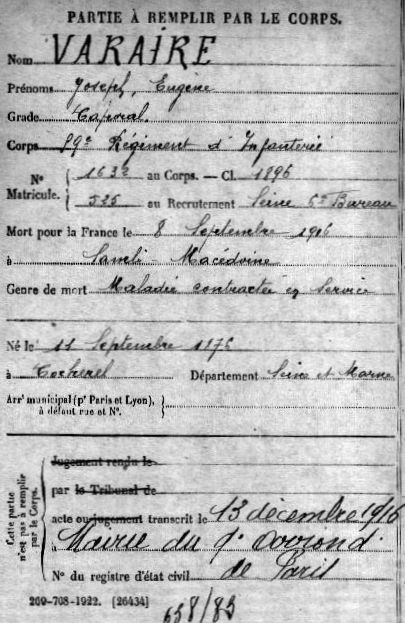 PARTIE À REMPLIR PAR LE CORPS.
Nom VARAIRE
Prénoms Joseph, Eugène
Grade Caporal
Corps 89e Régiment d'Infanterie
N° Matricule. { 1632 au Corps. — Cl. 1896
525 au Recrutement Seine 6e Bureau
Mort pour la France le 8 Septembre 1916
à Samli - Macédoine
Genre de mort Maladie contractée en service
Né le 11 Septembre 1876
à Cocherel Département Seine et Marne
Arrt municipal (pr Paris et Lyon), à défaut rue et N°. {
Cette partie n'est pas à remplir par le Corps. {
Jugement rendu le
par le Tribunal de
acte ou jugement transcrit le 13 décembre 1916
à Mairie du arrondt
de Paris
N° du registre d'état civil
209-708-1922. [26434]
658/83